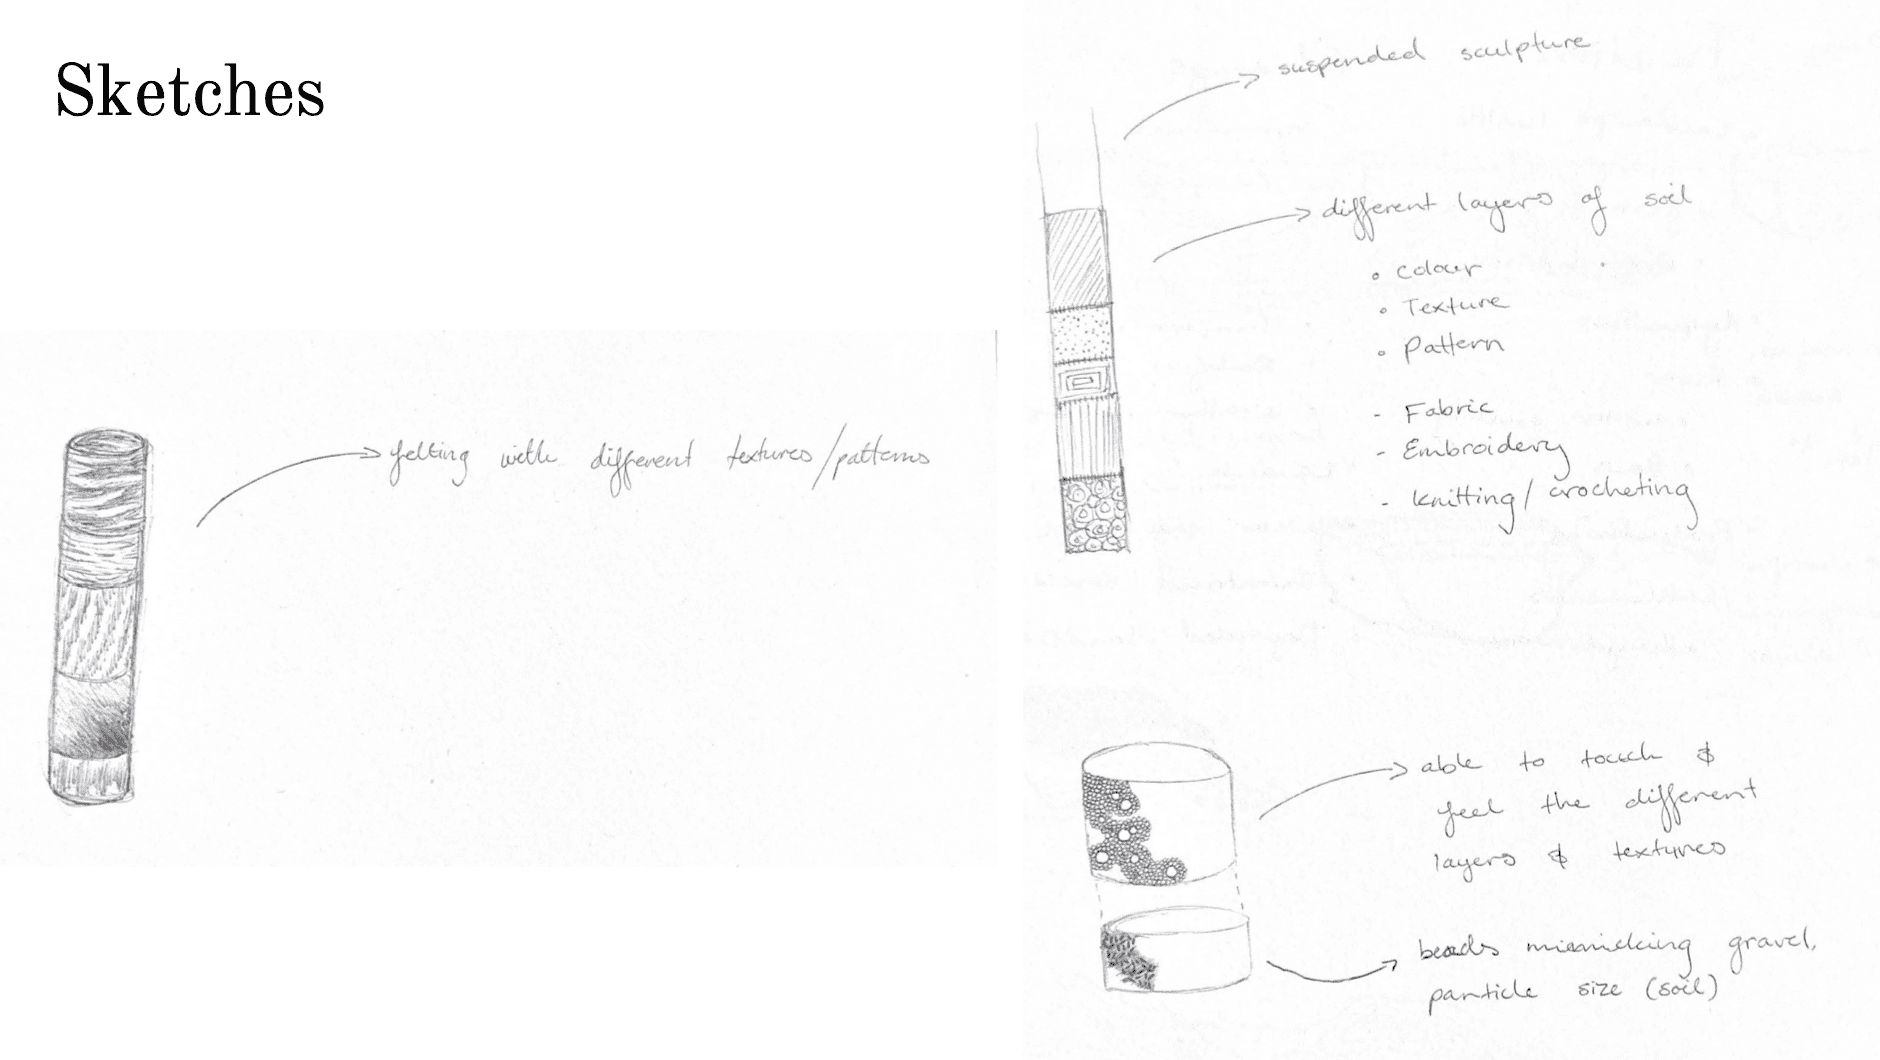 Sketches
felting with different textures/patterns
suspended sculpture
different layers of soil
• Colour
• Texture
• Pattern
- Fabric
- Embroidery
- knitting/crocheting
able to touch &
feel the different
layers & textures
beads mimicking gravel,
particle size (soil)